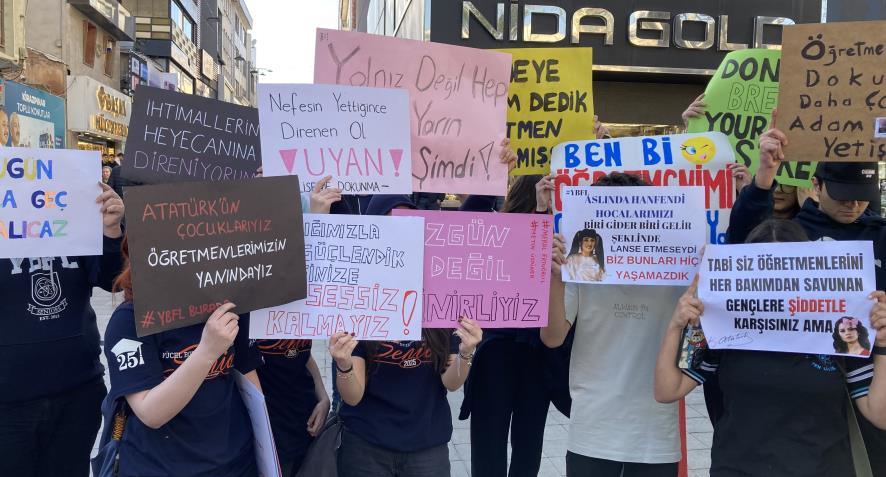 NIDA GOLD
Yolnız Değil Hep
Yarın
Şimdi!
DEYE
DEDİK
MIŞ.
DON
BRE
YOUR
Öğretme
Doku
Daha Ço
Adam
Yetiş
KİRAZPINAR
TOPLU KONUTLAR
IHTIMALLERİN
HEYECANINA
DİRENİYORUM
Nefesin Yettiğince
Direnen Ol
!UYAN!
Liseme Dokunma
UGÜN
A GEÇ
ALICAZ
ATATÜRK'ÜN
ÇOCUKLARIYIZ
ÖĞRETMENLERİMİZİN
YANINDAYIZ
#YBFL BURADA
IĞIMIZLA
GÜÇLENDİK
SESSİZ
KALMAYIZ!
ZGÜN
DEĞİL
NİRLİYİZ
BEN Bİ
ÖĞRETMENİM
#YBFL
ASLINDA HANFENDİ
HOCALARIMIZI
BİRİ GİDER BİRİ GELİR
ŞEKLİNDE
LANSE ETMESEYDİ
BİZ BUNLARI HİÇ
YAŞAMAZDIK
TABİ SİZ ÖĞRETMENLERİNİ
HER BAKIMDAN SAVUNAN
GENÇLERE ŞİDDETLE
KARŞISINIZ AMA
251
Senior
2025
YBFL
SENIORS
CONTROL